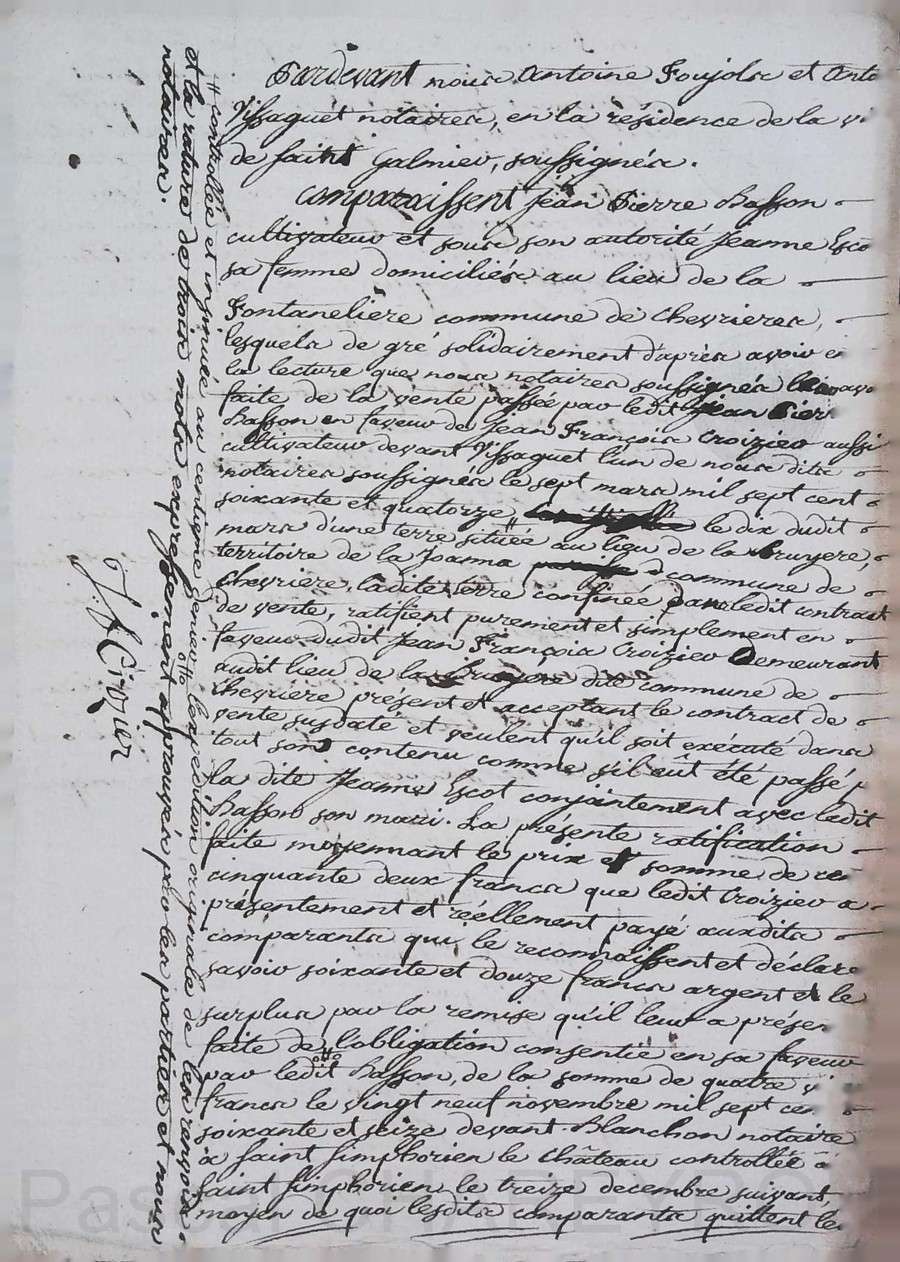 Pardevant nous Antoine Poujols et Anto
Vissaguet notaires, en la résidence de la vi
de saint Galmier, soussignés.
comparaissent Jean Pierre Basson
cultivateur et sous son autorité Jeanne Esco
sa femme domiciliés au lieu de la
Fontaneliere commune de chevrieres,
lesquels de gré solidairement d'après avoir e
la lecture que nous notaires soussignés avo
faite de la vente passée par ledit Jean Pier
Basson en faveur de Jean François Croizier aussi
cultivateur devant Vissaguet l'un de nous dits
notaires soussignés le sept mars mil sept cent
soixante et quatorze le dix dudit
mars d'une terre située au lieu de la Bruyere,
territoire de la commune de
Chevriere, ladite terre confinée par ledit contract
de vente, ratifient purement et simplement en
faveur dudit Jean François Croizier Demeurant
audit lieu de la bruyere dite commune de
chevriere présent et acceptant le contract de
vente susdaté et veulent qu'il soit exécuté dans
tout son contenu comme s'il eût été passé p
la dite Jeanne Escot conjointement avec ledit
Basson son mari. La présente ratification
faite moyennant le prix et somme de ce
cinquante deux francs que ledit Croizier a
présentement et réellement payé auxdits
comparants qui le reconnaissent et déclare
savoir soixante et douze francs argent et le
surplus par la remise qu'il leur a présen
faite de l'obligation consentie en sa faveur
par ledit Basson, de la somme de quatre vi
francs le vingt neuf novembre mil sept cen
soixante et seize devant Blanchon notaire
à saint simphorien le château controllée à
saint simphorien le treize decembre suivant
moyen de quoi lesdits comparants quittent le
# controllée et insinuée au centieme denier l'expedition originale de les renvois
et la rature de trois mots expressement approuvés par les parties et nous
notaires.
J. f. Crozier